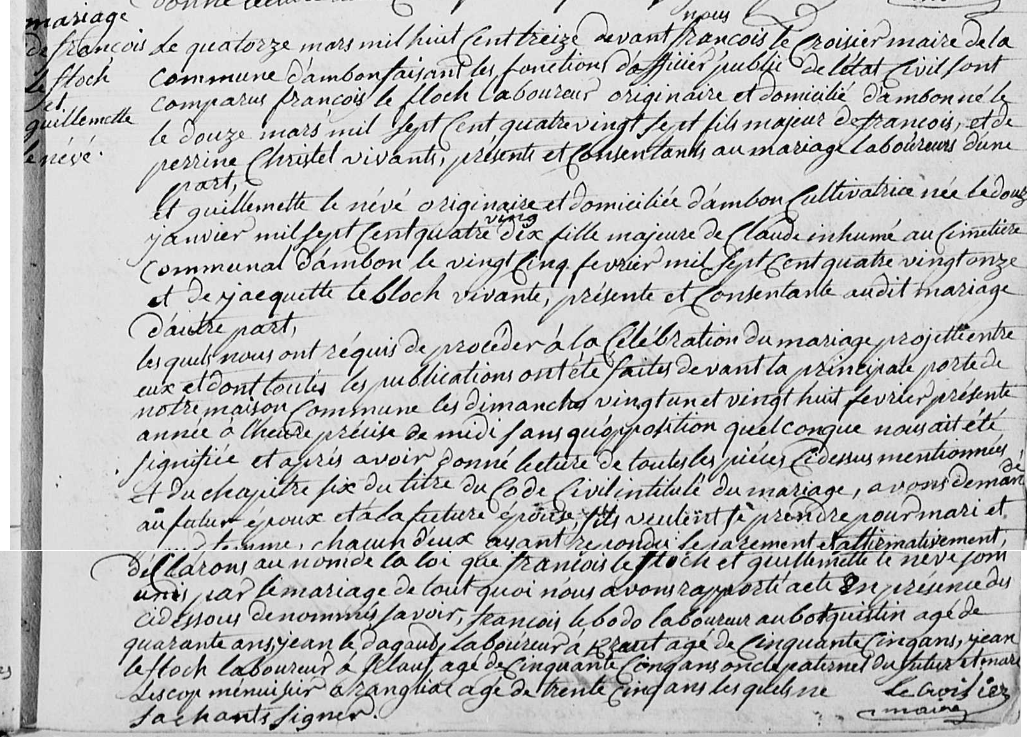 mariage
de françois
le floch
et
guillemette
le névé.
nous
Le quatorze mars mil huit Cent treize devant françois le Croisier maire de la
commune d'ambon faisant les fonctions d'officier public de l'état Civil sont
comparus françois le floch laboureur originaire et domicilié d'ambon né le
le douze mars mil sept Cent quatre vingt sept fils majeur de françois, et de
perrine Christel vivants, présents et Consentants au mariage laboureurs d'une
part,
et guillemette le névé originaire et domiciliée d'ambon Cultivatrice née le douz
ving
janvier mil sept Cent quatre dix fille majeure de Claude inhumé au Cimetière
Communal d'ambon le vingt Cinq fevrier mil sept Cent quatre vingt onze
et de jacquette le bloch vivante, présente et Consentante audit mariage
d'autre part,
lesquels nous ont réquis de procéder à la Célébration du mariage projetté entre
eux et dont toutes les publications ont été faites devant la principale porte de
notre maison Commune les dimanches vingt un et vingt huit fevrier présente
année à l'heure précise de midi sans qu'opposition quelconque nous ait été
signifiée et après avoir donné lecture de toutes les pièces Cidessus mentionnées
Et du chapitre six du titre du Code Civil intitulé du mariage, avons demandé
au futur époux et a la future épouse, s'ils veulent se prendre pour mari et
femme, chacun d'eux ayant répondu séparement et affirmativement,
déclarons au nom de la loi que françois le floch et guillemette le névé sont
unis par le mariage de tout quoi nous avons rapporté acte En présence des
cidessous denommés savoir, françois le bodo laboureur au botquistin agé de
quarante ans, jean le dagaud, laboureur à agé de Cinquante Cinq ans, jean
le floch laboureur à agé de Cinquante Cinq ans oncle paternel du futur et marc
Lescop menuisier à rangliac agé de trente Cinq ans lesquels ne
sachants signer.
le Croisier
maire